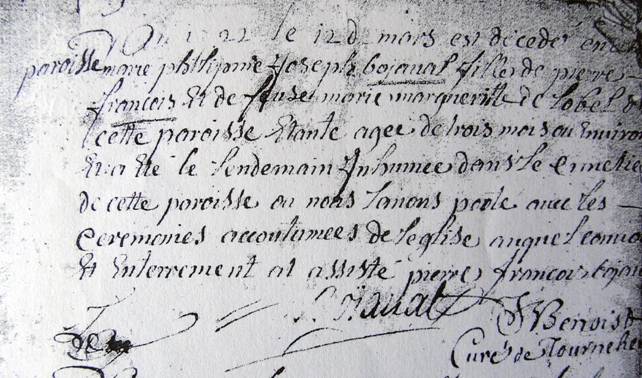 1722 le 12 d mars est décedé en
paroisse marie philipinne Joseph bojaual fille de pierre
francois Et de feuse marie marguerite de lobel
cette paroisse Etante agee de trois mois ou Environ
Et a Eté le lendemain Inhumee dans le cimetie
de cette paroisse ou nous lauons porté auec les
Ceremonies accoutumees de leglise auquel conuoi
Et Enterrement at assisté pierre francois bojau
bojaual
Benoist
Curé de Tournehe